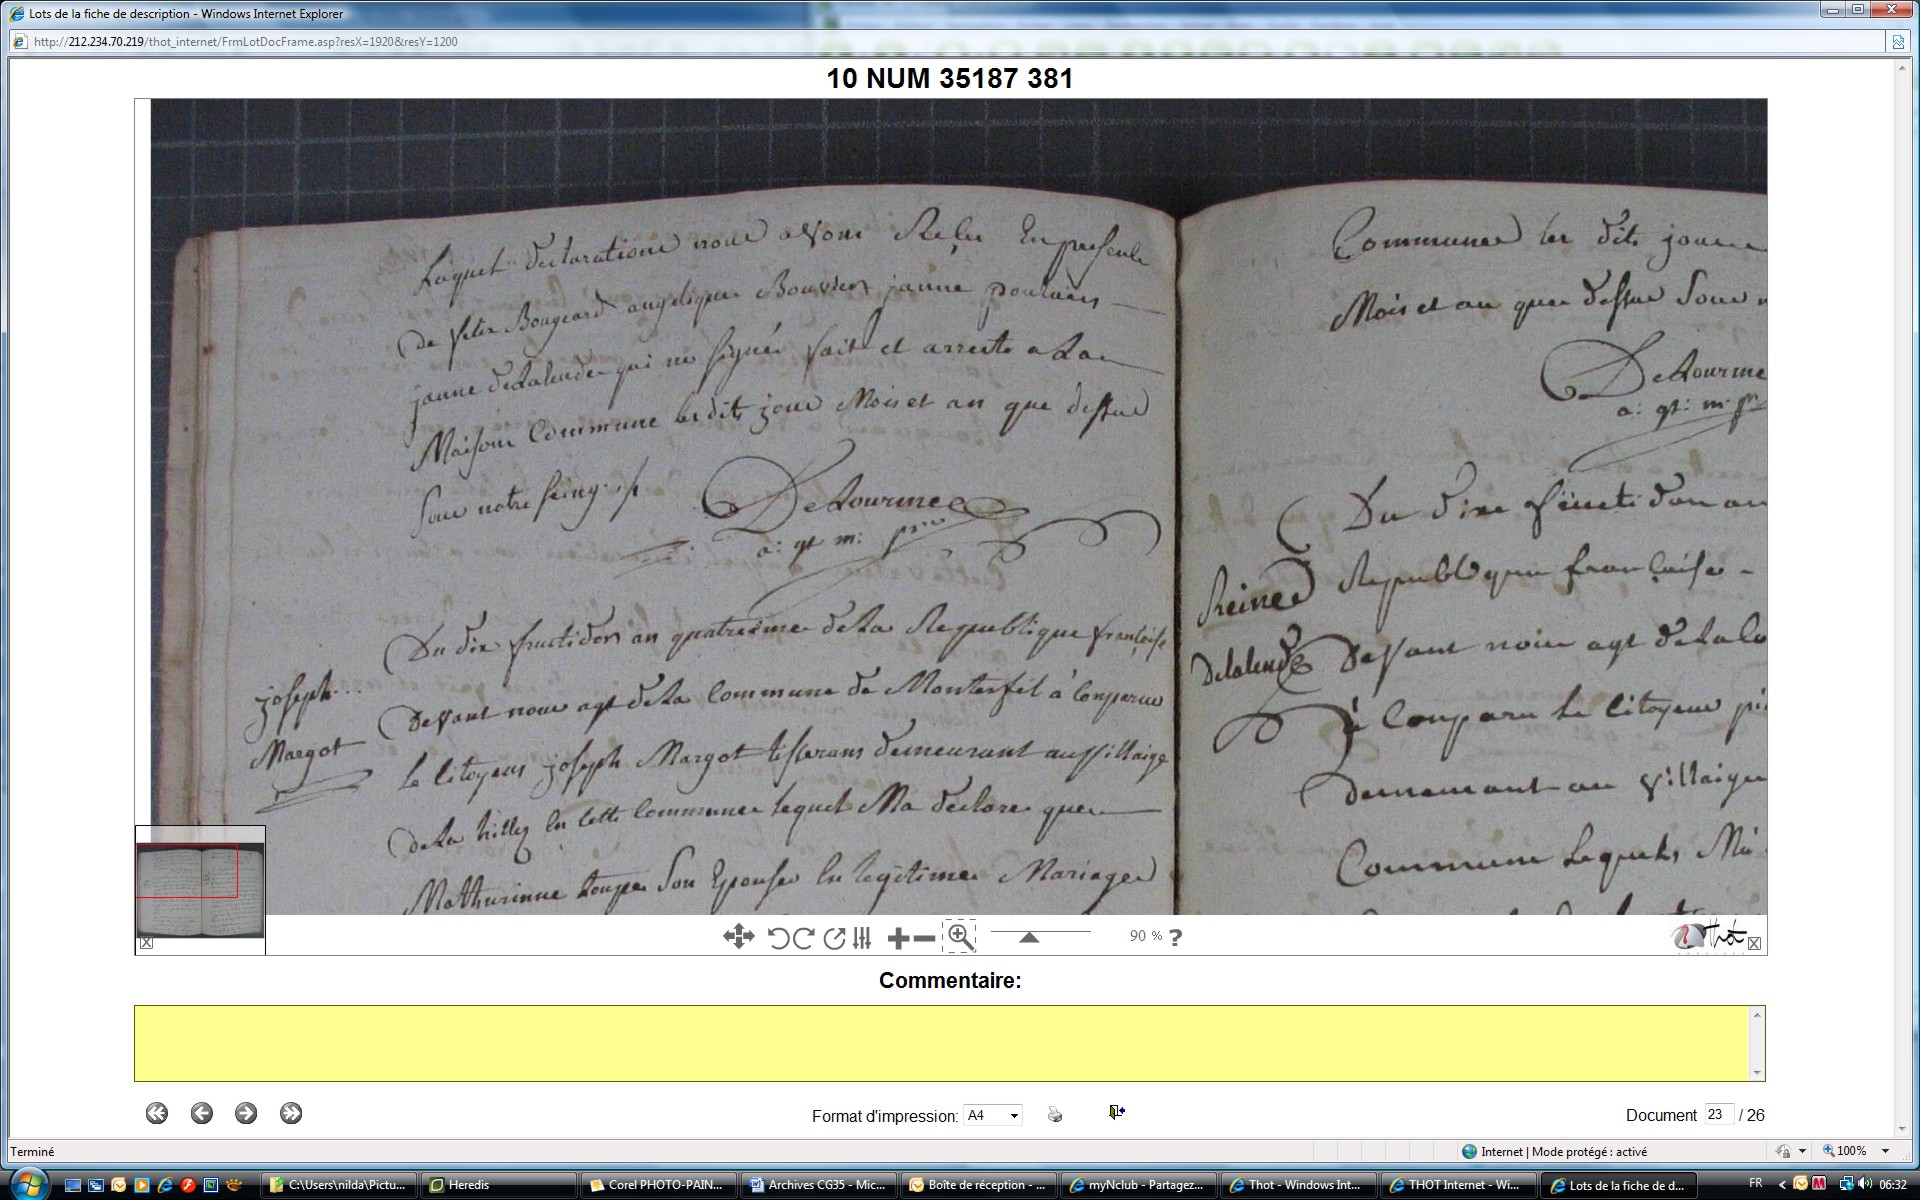 Lots de la fiche de description - Windows Internet Explorer
http://212.234.70.219/thot_internet/FrmLotDocFrame.asp?resX=1920&resY=1200
10 NUM 35187 381
Laquel declarations nous avons Reçu En presence
de felix Bougeard angelique Bouvier janne poulain
janne delalende qui ne signée fait et arresté a La
Maison Commune les dits jour Mois et an que dessus
Sous notre seing
Delourme
a: gt m:
Du dix fructidor an quatrieme de La Republique françoise
joseph
Margot
Devant nous agt de La Commune de Monterfil à Comparue
le Citoyens joseph Margot tisserans demeurant au village
de La hilly En cette Commune lequel Ma declare que
Mathurinne Son Epouse En legitime Mariage
Commune les dits jour
Mois et an que dessus Sous
Delourme
a: gt: m:
Du dixe fructidor an
Reine
delalende
Republique françaisse
Devant nous agt de La
à Comparu Le Citoyens
demeurant au village
Commune Lequel
90 %
?
Thot
Commentaire:
Format d'impression: A4
Document 23 / 26
Terminé
Internet | Mode protégé : activé
100%
C:\Users\nilda\Pictu...
Heredis
Corel PHOTO-PAIN...
Archives CG35 - Mic...
Boîte de réception - ...
myNclub - Partagez...
Thot - Windows Int...
THOT Internet - Wi...
Lots de la fiche de d...
FR
06:32